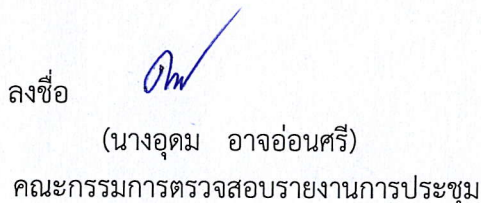 ลงชื่อ
(นางอุดม อาจอ่อนศรี)
คณะกรรมการตรวจสอบรายงานการประชุม